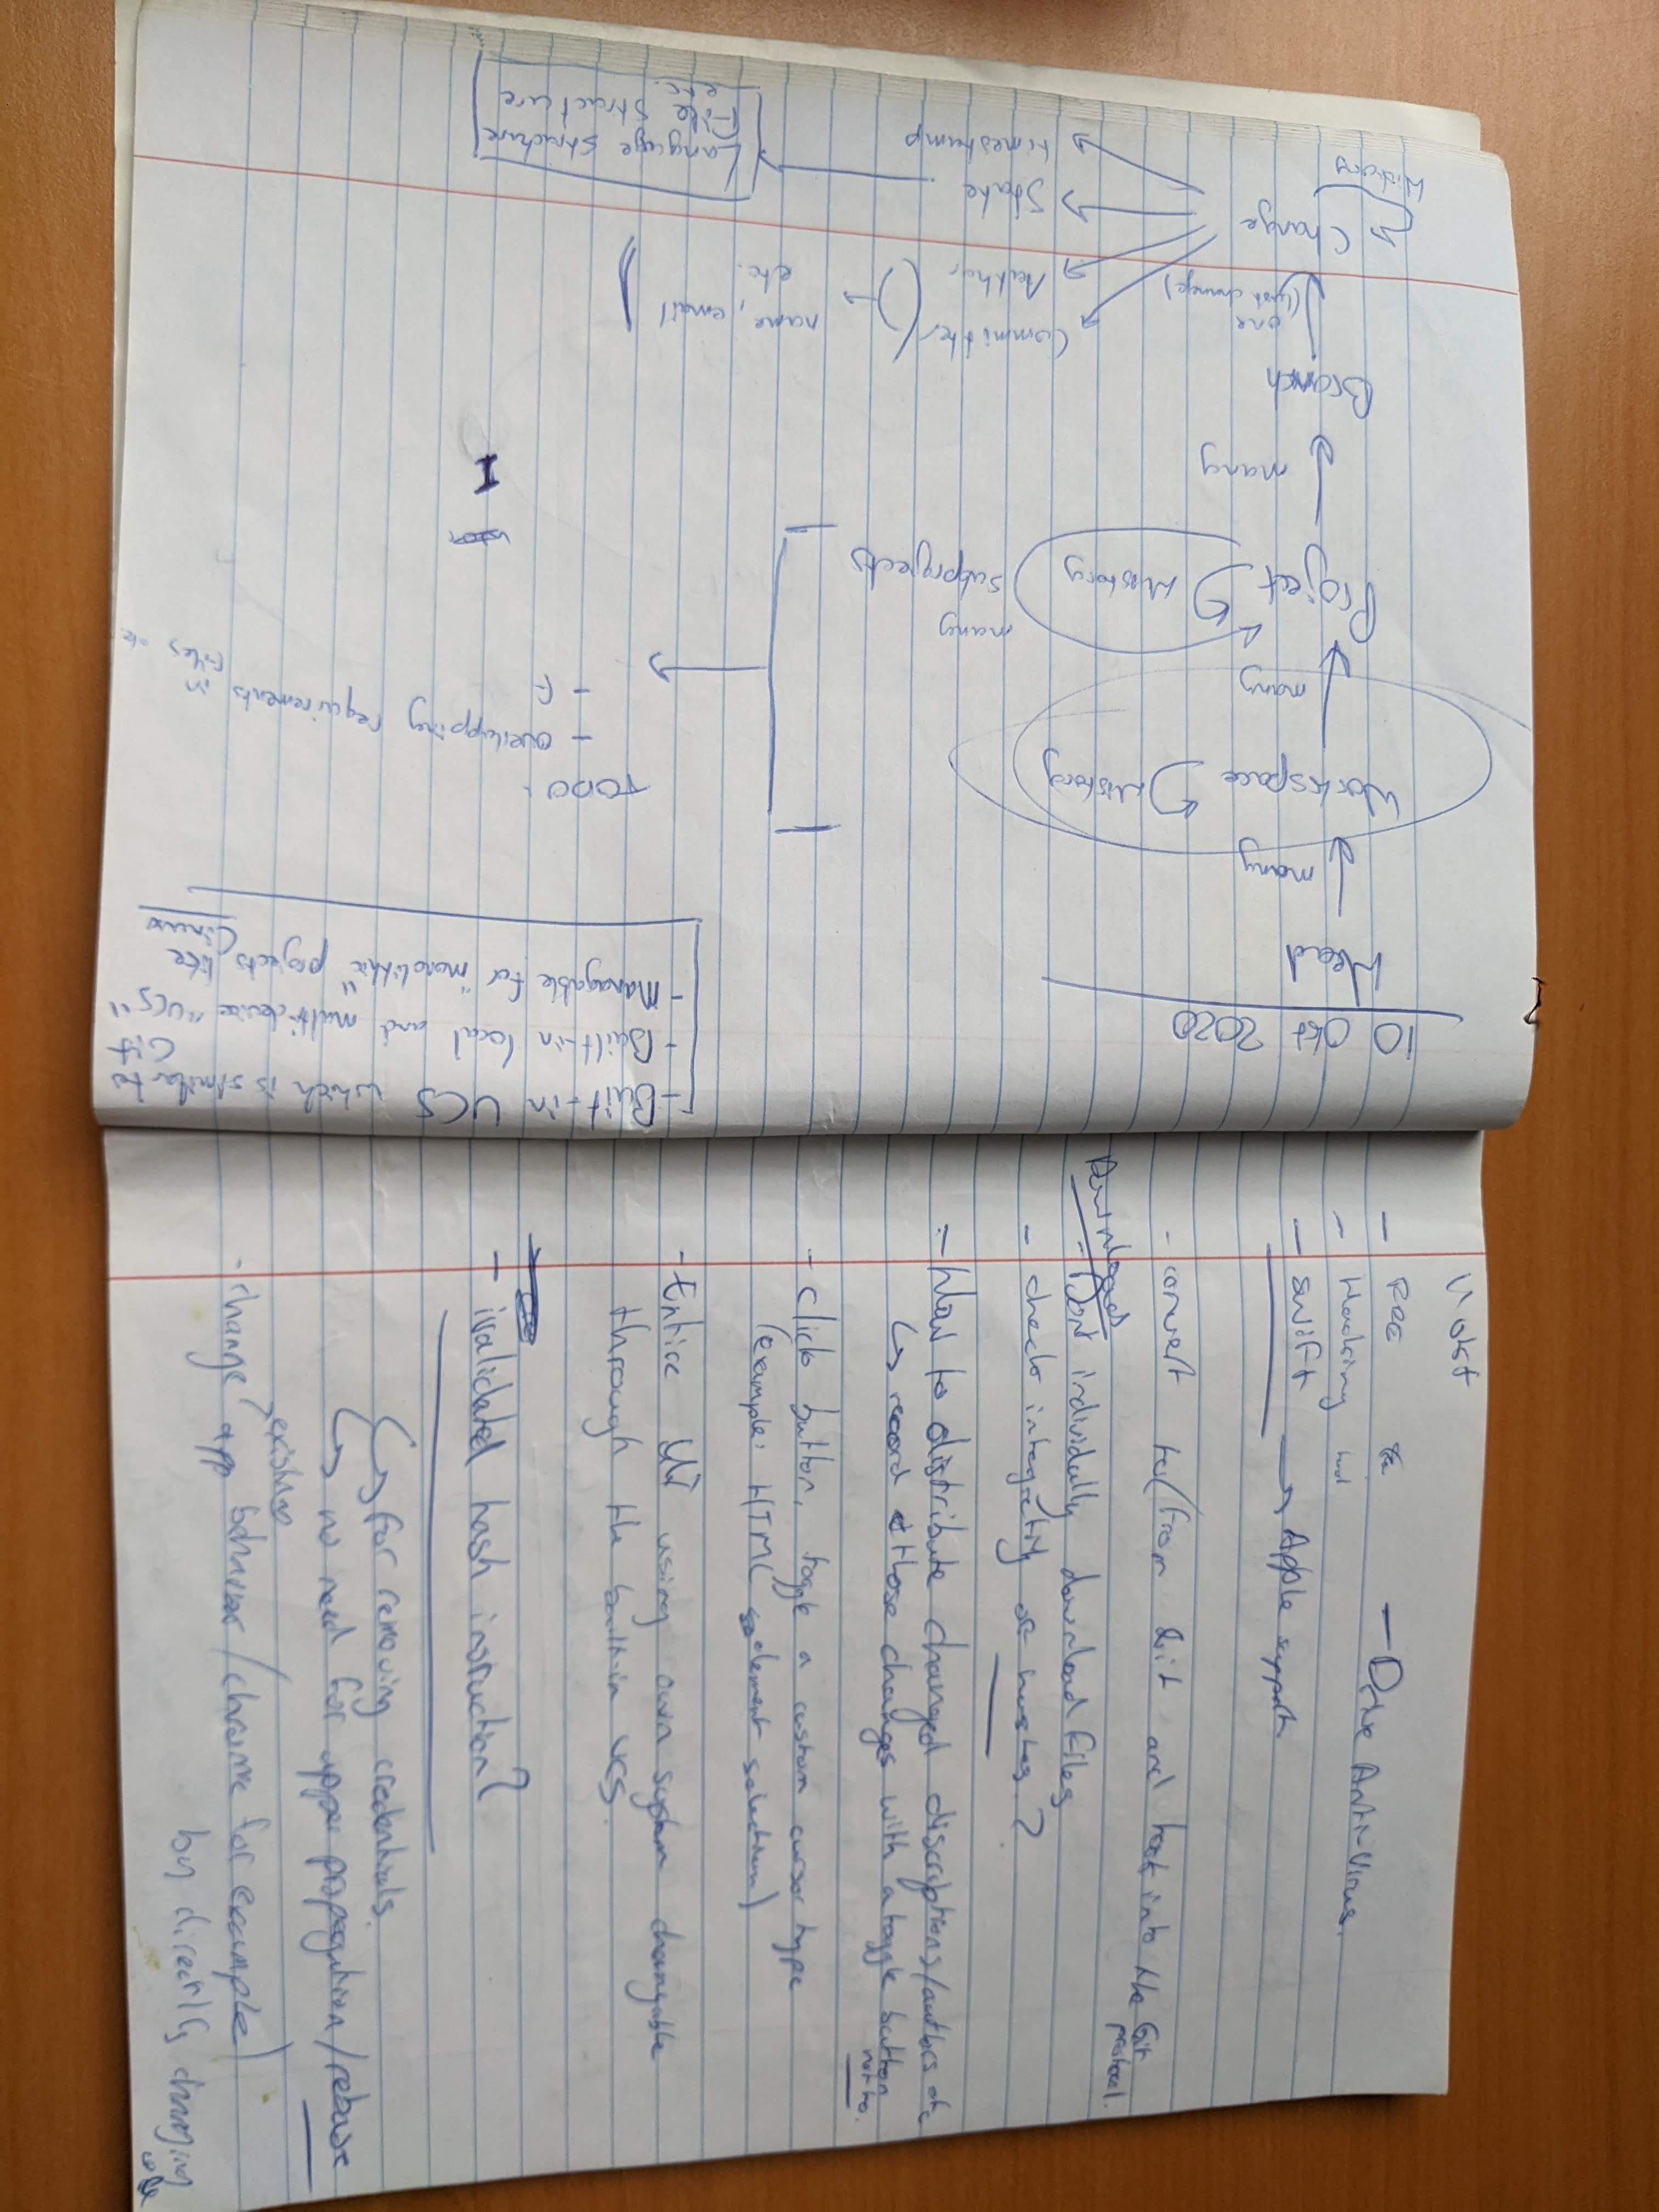 10 Okt 2020
Head
many
Workspace
History
many
Project
History
many
subprojects
many
Branch
one
(last change)
Change
History
Committer
Author
State
timestamp
name, email
etc.
Language Structure
File Structure
etc.
TODO:
- overlapping requirements in
files etc
- F
- Built-in VCS which is similar to
Git
- Built-in local and multi-device "VCS"
- Managable for "monolithic" projects like
Linux
11 okt
- Dtke Anti-Virus.
-
- Hooking
- swift → Apple support
- convert to/from Git and hook into the Git
protocol.
Downloads
- Dont individally download files
- check integrity of hashes?
- How to distribute changed discriptions/authors etc
↳ record those changes with a toggle button
not to.
- click button, toggle a custom cursor type
(example: HTML element selection)
- Entice UI using own system changable
through the built-in VCS.
- ivalidated hash instruction?
↳ for removing credentials.
↳ no need for upper propagation/rebase
existing
- change app behavior (chrome for example)
by directly changing
code